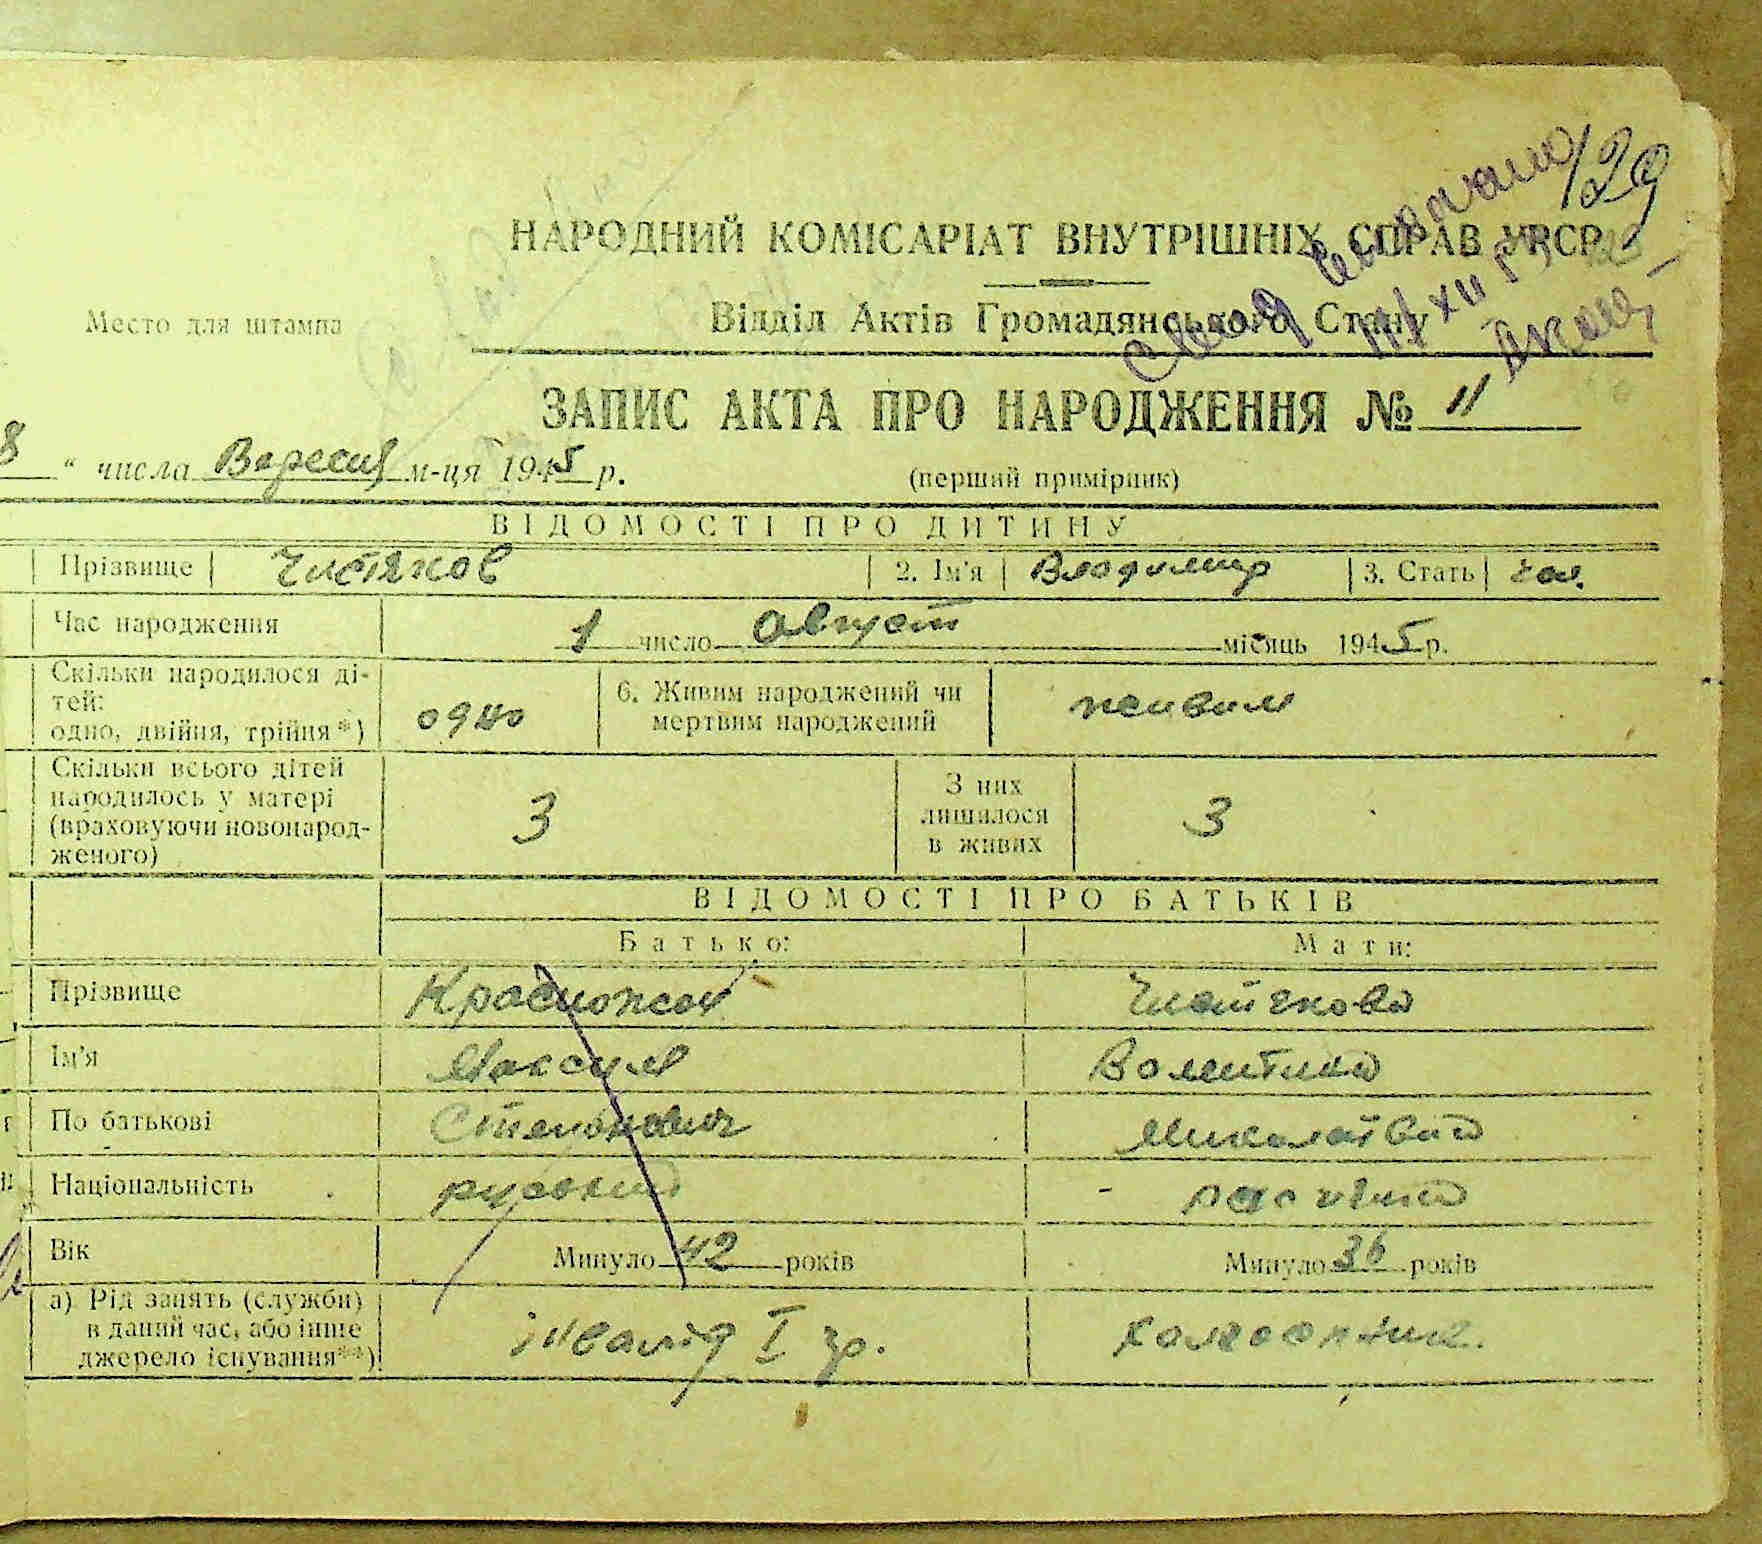 129
НАРОДНИЙ КОМІСАРІАТ ВНУТРІШНІХ СПРАВ УРСР
Место для штампа
Відділ Актів Громадянського Стану
ЗАПИС АКТА ПРО НАРОДЖЕННЯ № 11
8 " числа Вересня м-ця 1945 р.
(перший примірник)
ВІДОМОСТІ ПРО ДИТИНУ
Прізвище Чистяков 2. Ім'я Владимир 3. Стать чол.
Час народження 1 число Август місяць 1945 р.
Скільки народилося ді-
тей:
одно, двійня, трійня*) одно 6. Живим народжений чи
мертвим народжений живим
Скільки всього дітей
народилось у матері
(враховуючи новонарод-
женого) 3 З них
лишилося
в живих 3
ВІДОМОСТІ ПРО БАТЬКІВ
Батько: Мати:
Прізвище Красножон Чистякова
Ім'я Максим Валентина
По батькові Степанович
Національність руський
Вік Минуло 42 років Минуло 36 років
а) Рід занять (служби)
в даний час, або інше
джерело існування**) інвалід I гр.